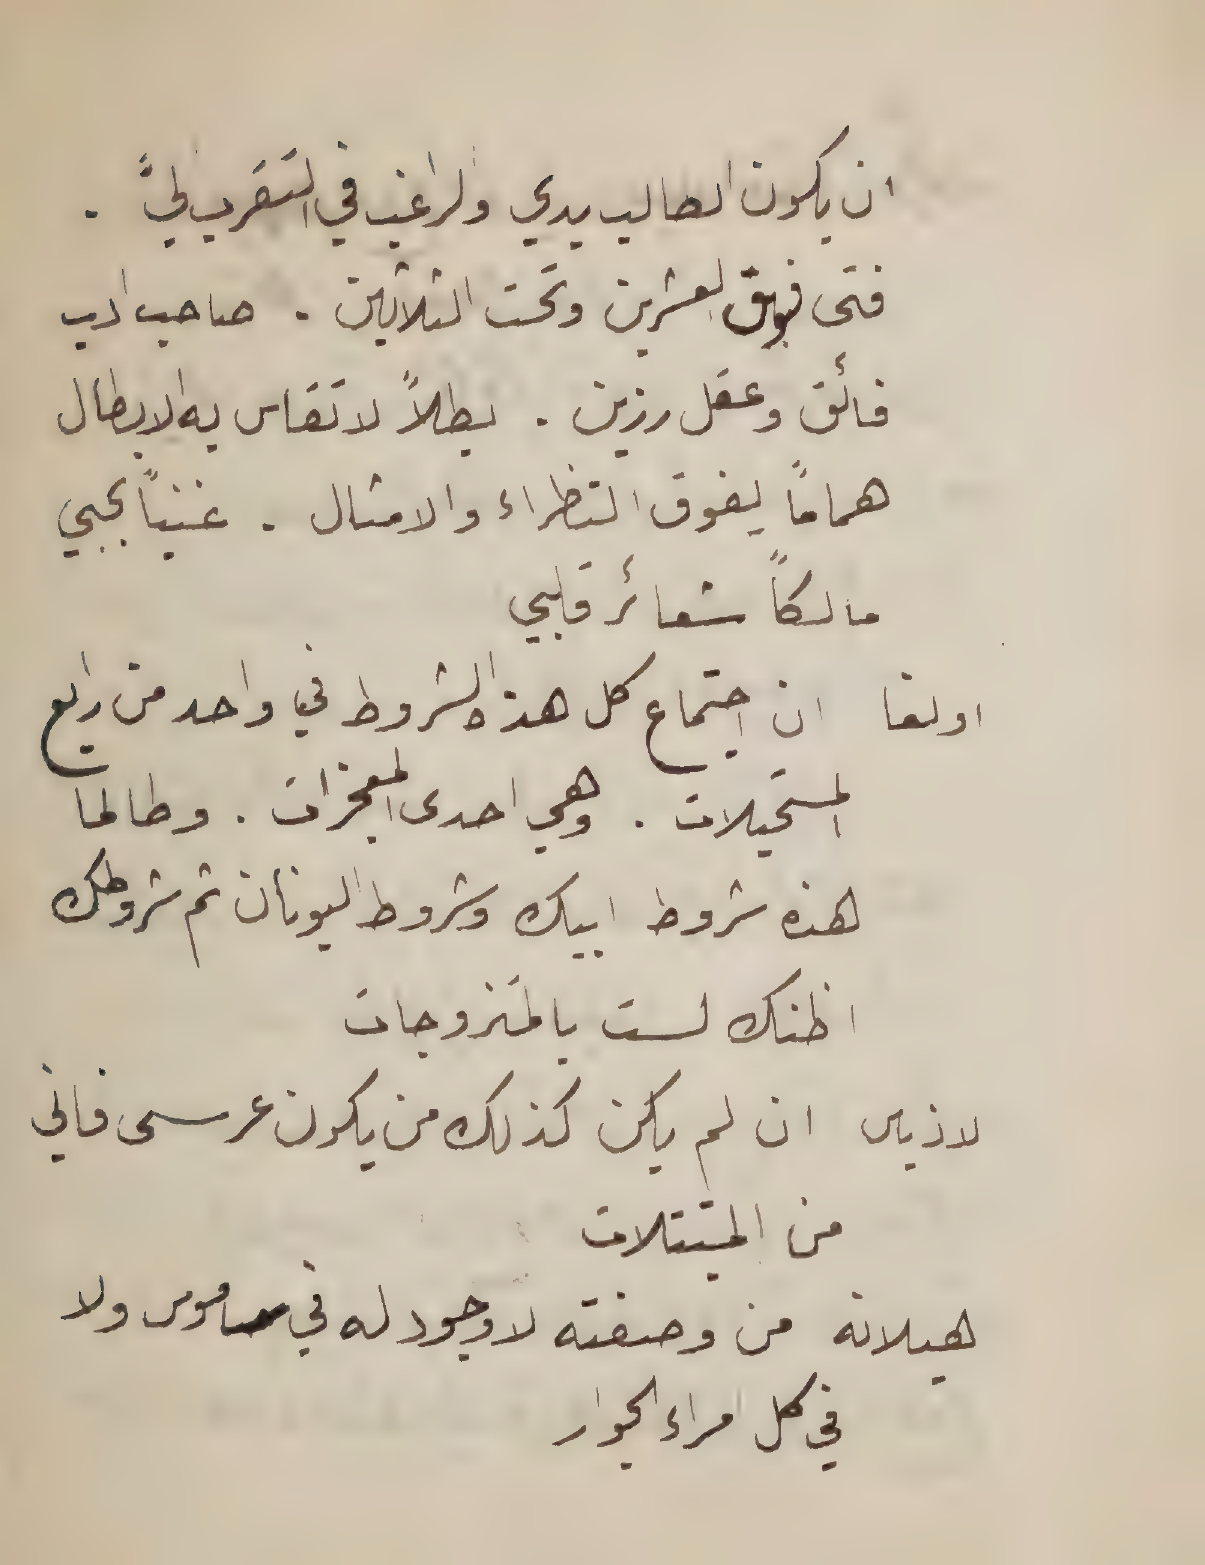 ان يكون الطالب يدي والراغب في التَقَرب اليَّ .
فتى فوق العشرين وتحت الثلاثين . صاحب ادب
فائق وعقل رزين . بطلاً لا تقاس به الابطال
هماماً يفوق النظراء والامثال . غنياً بحبي
مالكاً شعائر قلبي
اولغا ان اجتماع كل هذه الشروط في واحد من رابع
المستحيلات . وهي احدى المعجزات . وطالما
هذه شروط ابيك وشروط اليونان ثم شروطك
اظنك لست بالمتزوجات
لاذيس ان لم يكن كذلك من يكون عرسى فاني
من المتبتلات
هيلانة من وصفته لا وجود له في ساموس ولا
في كل امراء الجوار